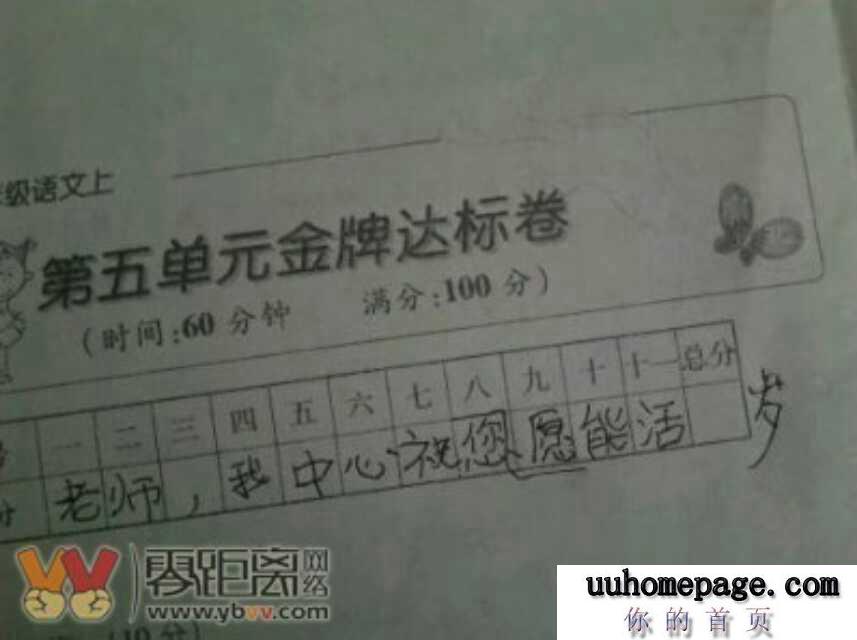 级语文上
第五单元金牌达标卷
(时间:60 分钟 满分:100 分)
一 二 三 四 五 六 七 八 九 十 十一 总分
分 老师，我中心祝您愿能活 岁
零距离网络
www.ybvv.com
(10分)
uuhomepage.com
你的首页